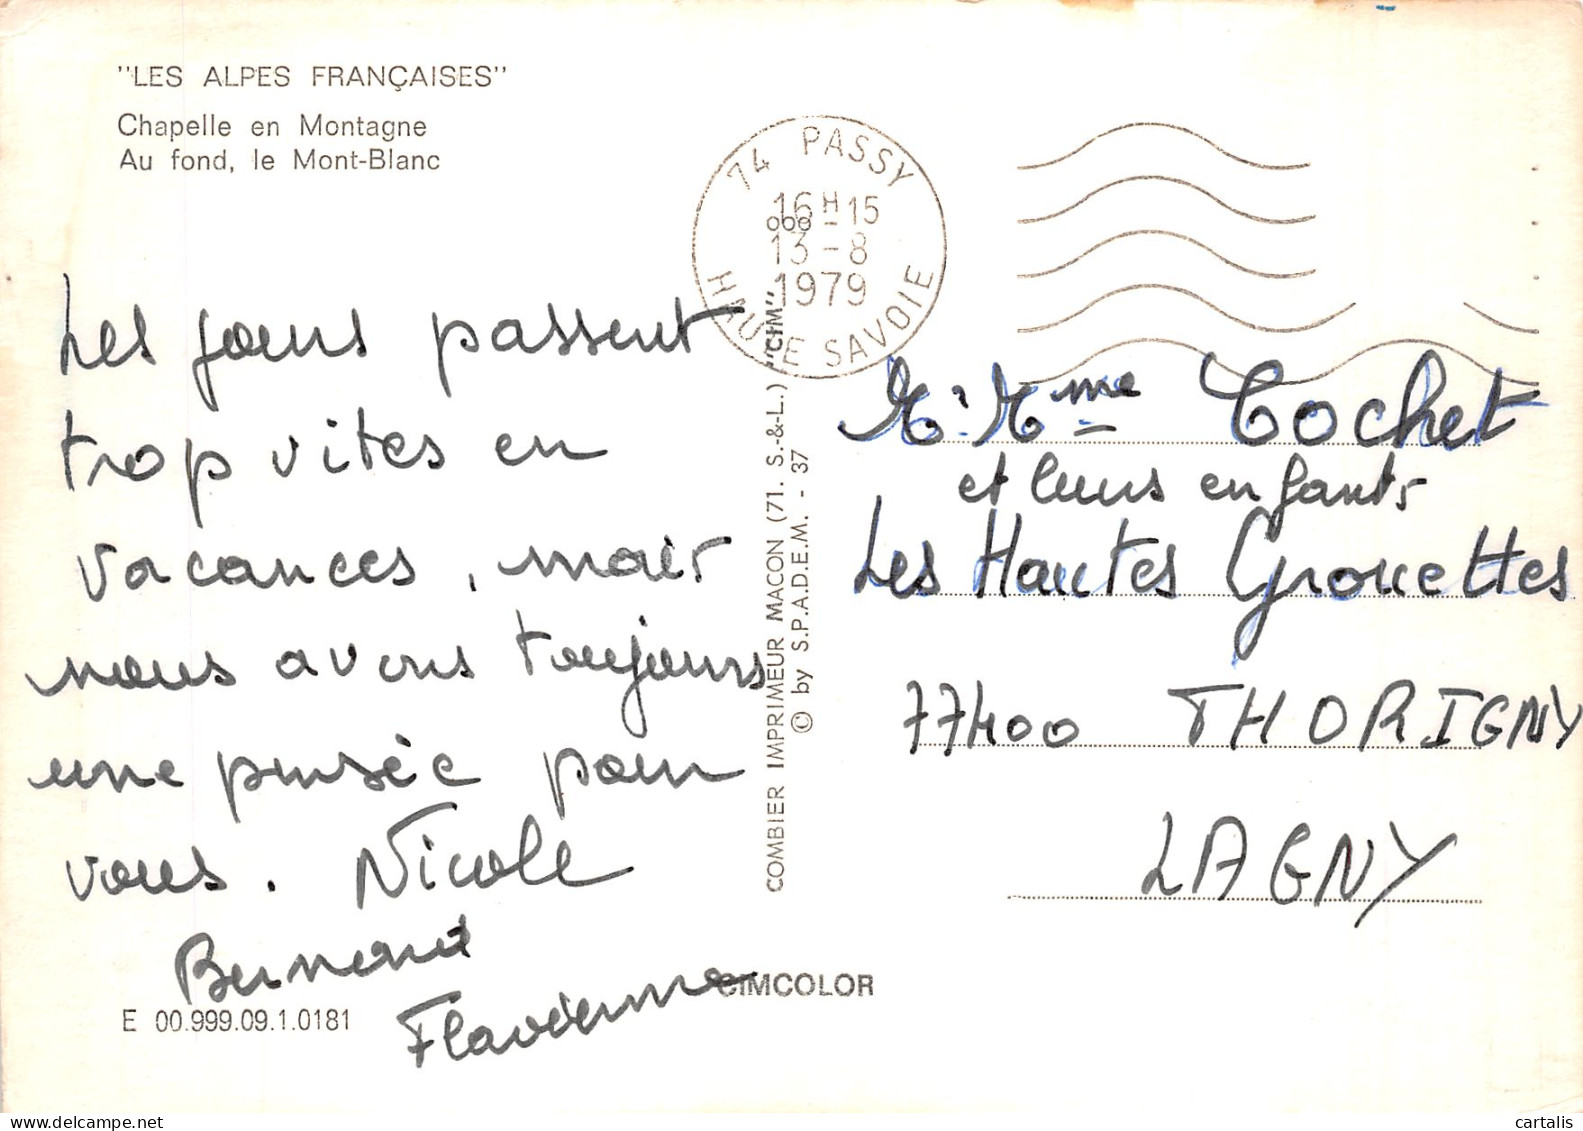 "LES ALPES FRANÇAISES"
Chapelle en Montagne
Au fond, le Mont-Blanc
74 PASSY
16H-15
13-8
1979
HAUTE SAVOIE
Les jours passent
trop vites en
vacances, mais
nous avons toujours
une pensée pour
vous. Nicole
Bernard
Flavienne
E 00.999.09.1.0181
COMBIER IMPRIMEUR MACON (71. S.-&-L.) "CIM"
© by S.P.A.D.E.M. - 37
CIMCOLOR
M. Mme Cochet
et leurs enfants
Les Hautes Grouettes
77400 THORIGNY
LAGNY
cartalis